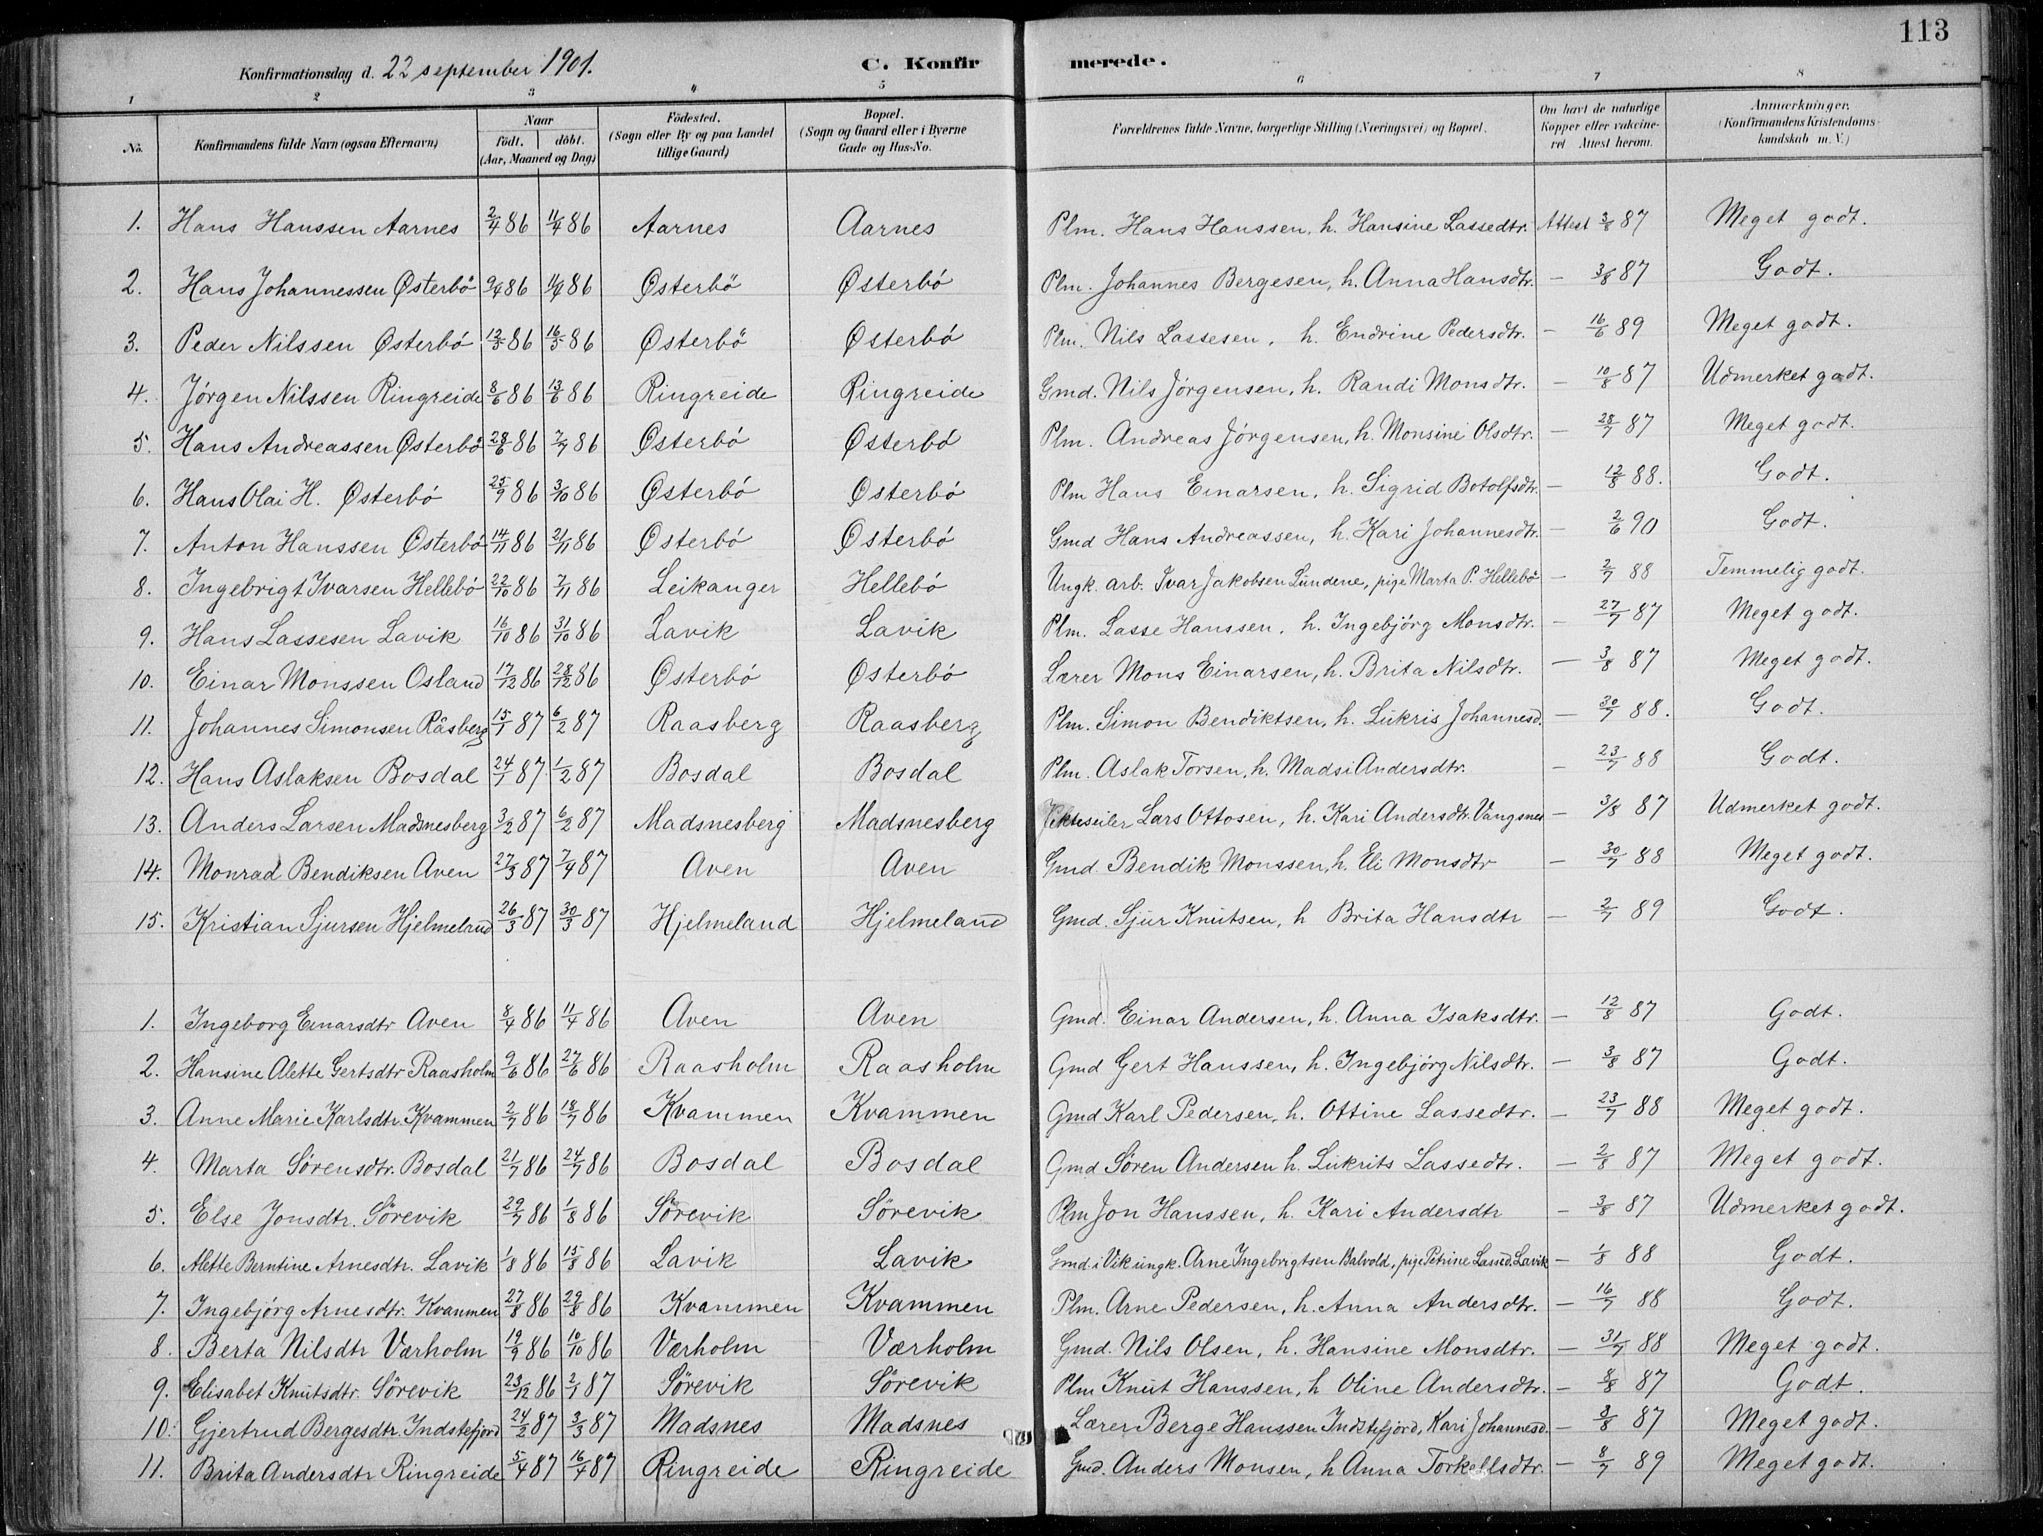 113
Konfirmationsdag d. 22 september 1901. C. Konfirmerede.
1 2 3 4 5 6 7 8
No. Konfirmandens fulde Navn (ogsaa Efternavn) Naar født. døbt. (Aar, Maaned og Dag) Fødested. (Sogn eller By og paa Landet tillige Gaard) Bopæl. (Sogn og Gaard eller i Byerne Gade og Hus-No. Forældrenes fulde Navne, borgerlige Stilling (Næringsvei) og Bopæl. Om havt de naturlige Kopper eller vakcineret Attest herom. Anmærkninger. (Konfirmandens Kristendomskundskab m. V.)
1. Hans Hanssen Aarnes 2/4 86 11/4 86 Aarnes Aarnes Plm. Hans Hanssen, h. Hansine Lassedtr. Attest 3/8 87 Meget godt.
2. Hans Johannessen Østerbö 86 86 Østerbö Østerbó Plm. Johannes Bergesen, h. Anna Hansdtr. — 3/8 87 Godt.
3. Peder Nilssen Østerbó 12/5 86 16/5 86 Østerbö Østerbó Plm. Nils Lassesen, h. Endrine Pedersdtr. — 16/6 89 Meget godt.
4. Jórgen Nilssen Ringreide 8/6 86 13/6 86 Ringreide Ringreide Gmd. Nils Jórgensen, h. Randi Monsdtr. — 10/8 87 Udmerket godt.
5. Hans Andreassen Østerbö 28/6 86 7/7 86 Østerbó Østerbó Plm. Andreas Jórgensen, h. Monsine Olsdtr. — 28/7 87 Meget godt.
6. Hans Olai H. Østerbó 25/9 86 3/10 86 Østerbó Østerbó Plm Hans Einarsen, h. Sigrid Botolfsdtr. — 12/8 88. Godt.
7. Anton Hanssen Østerbó 14/11 86 21/11 86 Østerbó Østerbó Gmd Hans Andreassen, h. Kari Johannesdtr. — 2/6 90 Godt.
8. Ingebrigt Ivarsen Hellebó 22/10 86 7/11 86 Leikanger Hellebó Ungk. arb. Ivar Jakobsen Lundene, pige Marta P. Hellebö — 2/7 88 Temmelig godt.
9. Hans Lassesen Lavik 16/10 86 31/10 86 Lavik Lavik Plm. Lasse Hanssen, h. Ingebjórg Monsdtr. — 27/7 87 Meget godt.
10. Einar Monssen Osland 17/12 86 28/12 86 Østerbó Østerbó Lærer Mons Einarsen, h. Brita Nilsdtr. — 3/8 87 Meget godt.
11. Johannes Simonsen Råsberg 15/1 87 6/2 87 Raasberg Raasberg Plm. Simon Bendiktsen, h. Lukris Johannesd. — 30/7 88. Godt.
12. Hans Aslaksen Bosdal 24/1 87 1/2 87 Bosdal Bosdal Plm. Aslak Torsen, h. Madsi Andersdtr. — 23/7 88 Godt.
13. Anders Larsen Madsnesberg 3/2 87 6/2 87 Madsnesberg Madsnesberg Jekteseiler Lars Ottosen, h. Kari Andersdtr. Vangsnes — 3/8 87 Udmerket godt.
14. Monrad Bendiksen Aven 27/3 87 7/4 87 Aven Aven Gmd. Bendik Monssen, h. Eli Monsdtr — 30/7 88 Meget godt.
15. Kristian Sjursen Hjelmeland 26/3 87 30/3 87 Hjelmeland Hjelmeland Gmd. Sjur Knutsen, h Brita Hansdtr — 2/7 89 Godt.
1. Ingeborg Einarsdtr Aven 8/4 86 11/4 86 Aven Aven Gmd. Einar Andersen, h. Anna Isaksdtr. — 12/8 87 Godt.
2. Hansine Alette Gertsdtr Raasholm 9/6 86 27/6 86 Raasholm Raasholm Gmd Gert Hanssen, h. Ingebjórg Nilsdtr. — 3/8 87 Godt.
3. Anne Marie Karlsdtr. Kvammen 2/7 86 18/7 86 Kvammen Kvammen Gmd Karl Pedersen, h. Ottine Lassedtr. — 23/7 88 Meget godt.
4. Marta Sórensdtr. Bosdal 21/7 86 24/7 86 Bosdal Bosdal Gmd Sóren Andersen h. Lukrits Lassedtr. — 2/8 87 Meget godt.
5. Else Jonsdtr. Sórevik 29/7 86 1/8 86 Sórevik Sórevik Plm Jon Hanssen, h. Kari Andersdtr — 3/8 87 Udmerket godt.
6. Alette Berntine Arnesdtr. Lavik 1/8 86 15/8 86 Lavik Lavik Gmd i Vik ungk. Arne Ingebrigtsen Balvold, pige Petrine Lassed. Lavik — 1/8 88 Godt.
7. Ingebjórg Arnesdtr. Kvammen 27/8 86 29/8 86 Kvammen Kvammen Plm. Arne Pedersen, h. Anna Andersdtr. — 16/7 88 Godt.
8. Berta Nilsdtr Værholm 19/9 86 10/10 86 Værholm Værholm Gmd. Nils Olsen, h. Hansine Monsdtr. — 31/7 88 Meget godt.
9. Elisabet Knutsdtr. Sórevik 23/12 86 2/1 87 Sórevik Sórevik Plm Knut Hanssen, h Oline Andersdtr. — 8/8 87 Godt.
10. Gjertrud Bergesdtr Indstefjord 24/2 87 3/3 87 Madsnes Madsnes Lærer Berge Hanssen Indstefjord, Kari Johannesd. — 3/8 87 Meget godt.
11. Brita Andersdtr Ringreide 5/4 87 16/4 87 Ringreide Ringreide Gmd. Anders Monsen, h Anna Torkellsdtr. — 8/7 89 Meget godt.